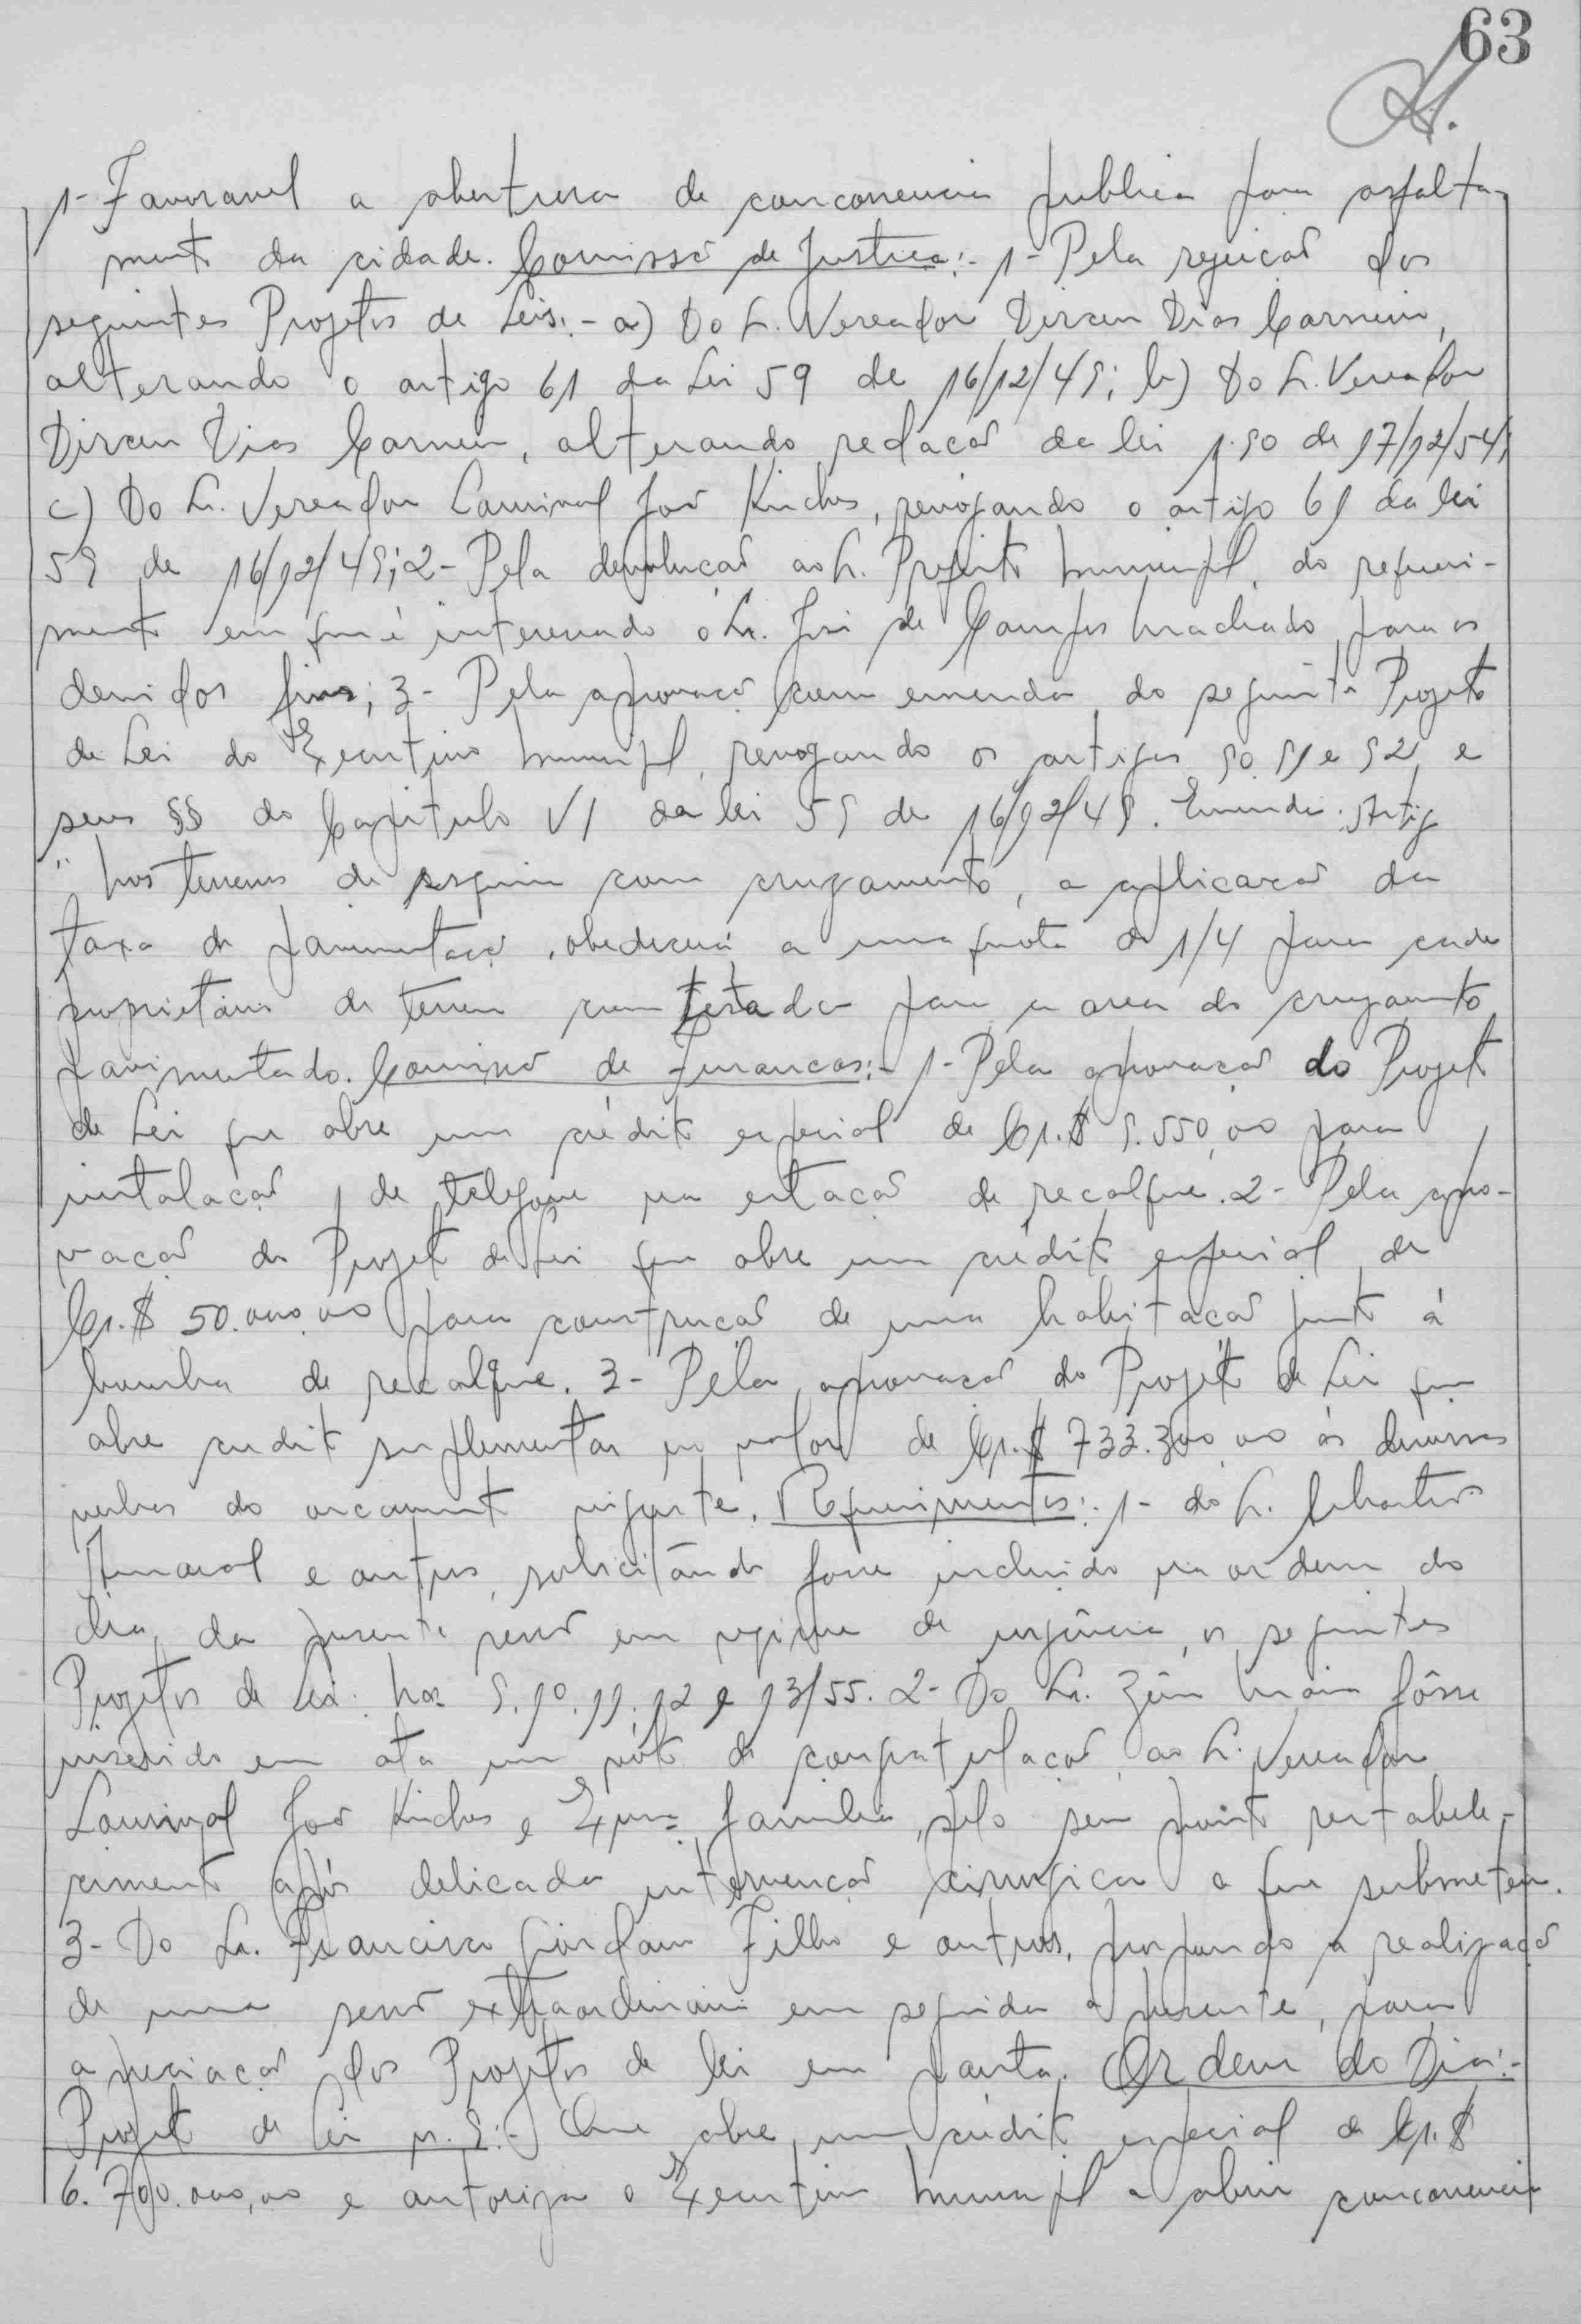 63
1- Favoravel a abertura de concorrencia publica para asfalta-
mento da cidade. Comissão de Justiça:- 1- Pela rejeição dos
seguintes Projetos de Leis:- a) Do Sr. Vereador Dirceu Dias Carneiro,
alterando o artigo 61 da Lei 59 de 16/12/49; b) Do Sr. Vereador
Dirceu Dias Carneiro, alterando redação da lei 190 de 17/12/54;
c) Do Sr. Vereador Laurival José, revogando o artigo 61 da lei
59 de 16/12/49; 2- Pela devolução ao Sr. Prefeito Municipal, do requeri-
mento em que é interessado o Sr. José de Campos Machado, para os
devidos fins; 3- Pela aprovação com emenda, do seguinte Projeto
de Lei do Executivo Municipal, revogando os artigos 90, 91 e 92, e
seus §§ do Capitulo VI da lei 59 de 16/12/49. Emenda: Artigo
" Nos terrenos de esquina com cruzamento, a aplicação da
taxa de pavimentação, obedecerá a uma quota de 1/4 para cada
proprietário de terreno com testada para a area do cruzamento
pavimentado. Comissão de Finanças:- 1- Pela aprovação do Projeto
de Lei que abre um crédito especial de Cr.$ 9.550,00 para
instalação de telefone na estação de recalque. 2- Pela apro-
vação do Projeto de Lei que abre um crédito especial de
Cr.$ 50.000,00 para construção de uma habitação junto á
bomba de recalque. 3- Pela aprovação do Projeto de Lei que
abre credito suplementar no valor de Cr.$ 733.300,00 ás diversas
verbas do orçamento vigente. Requerimentos:- 1- do Sr.
Amaral e outros, solicitando fosse incluido na ordem do
dia da presente sessão em regime de urgência, os seguintes
Projetos de Lei: Nos. 9. 10. 11. 12 e 13/55. 2- Do Sr. fôsse
inserido em ata um vóto de congratulação, ao Sr. Vereador
Laurival José e Exma. familia, pelo seu pronto restabele-
cimento após delicada intervenção cirurgica a que submeteu.
3- Do Sr. Francisco Giordano Filho e outros, propondo a realização
de uma sessão extraordinaria em seguida a presente, para
apreciação dos Projetos de lei em pauta. Ordem do Dia:-
Projeto de Lei n. 9:- Que abre um crédito especial de Cr.$
6.700.000,00 e autoriza o Executivo Municipal a abrir concorrencia